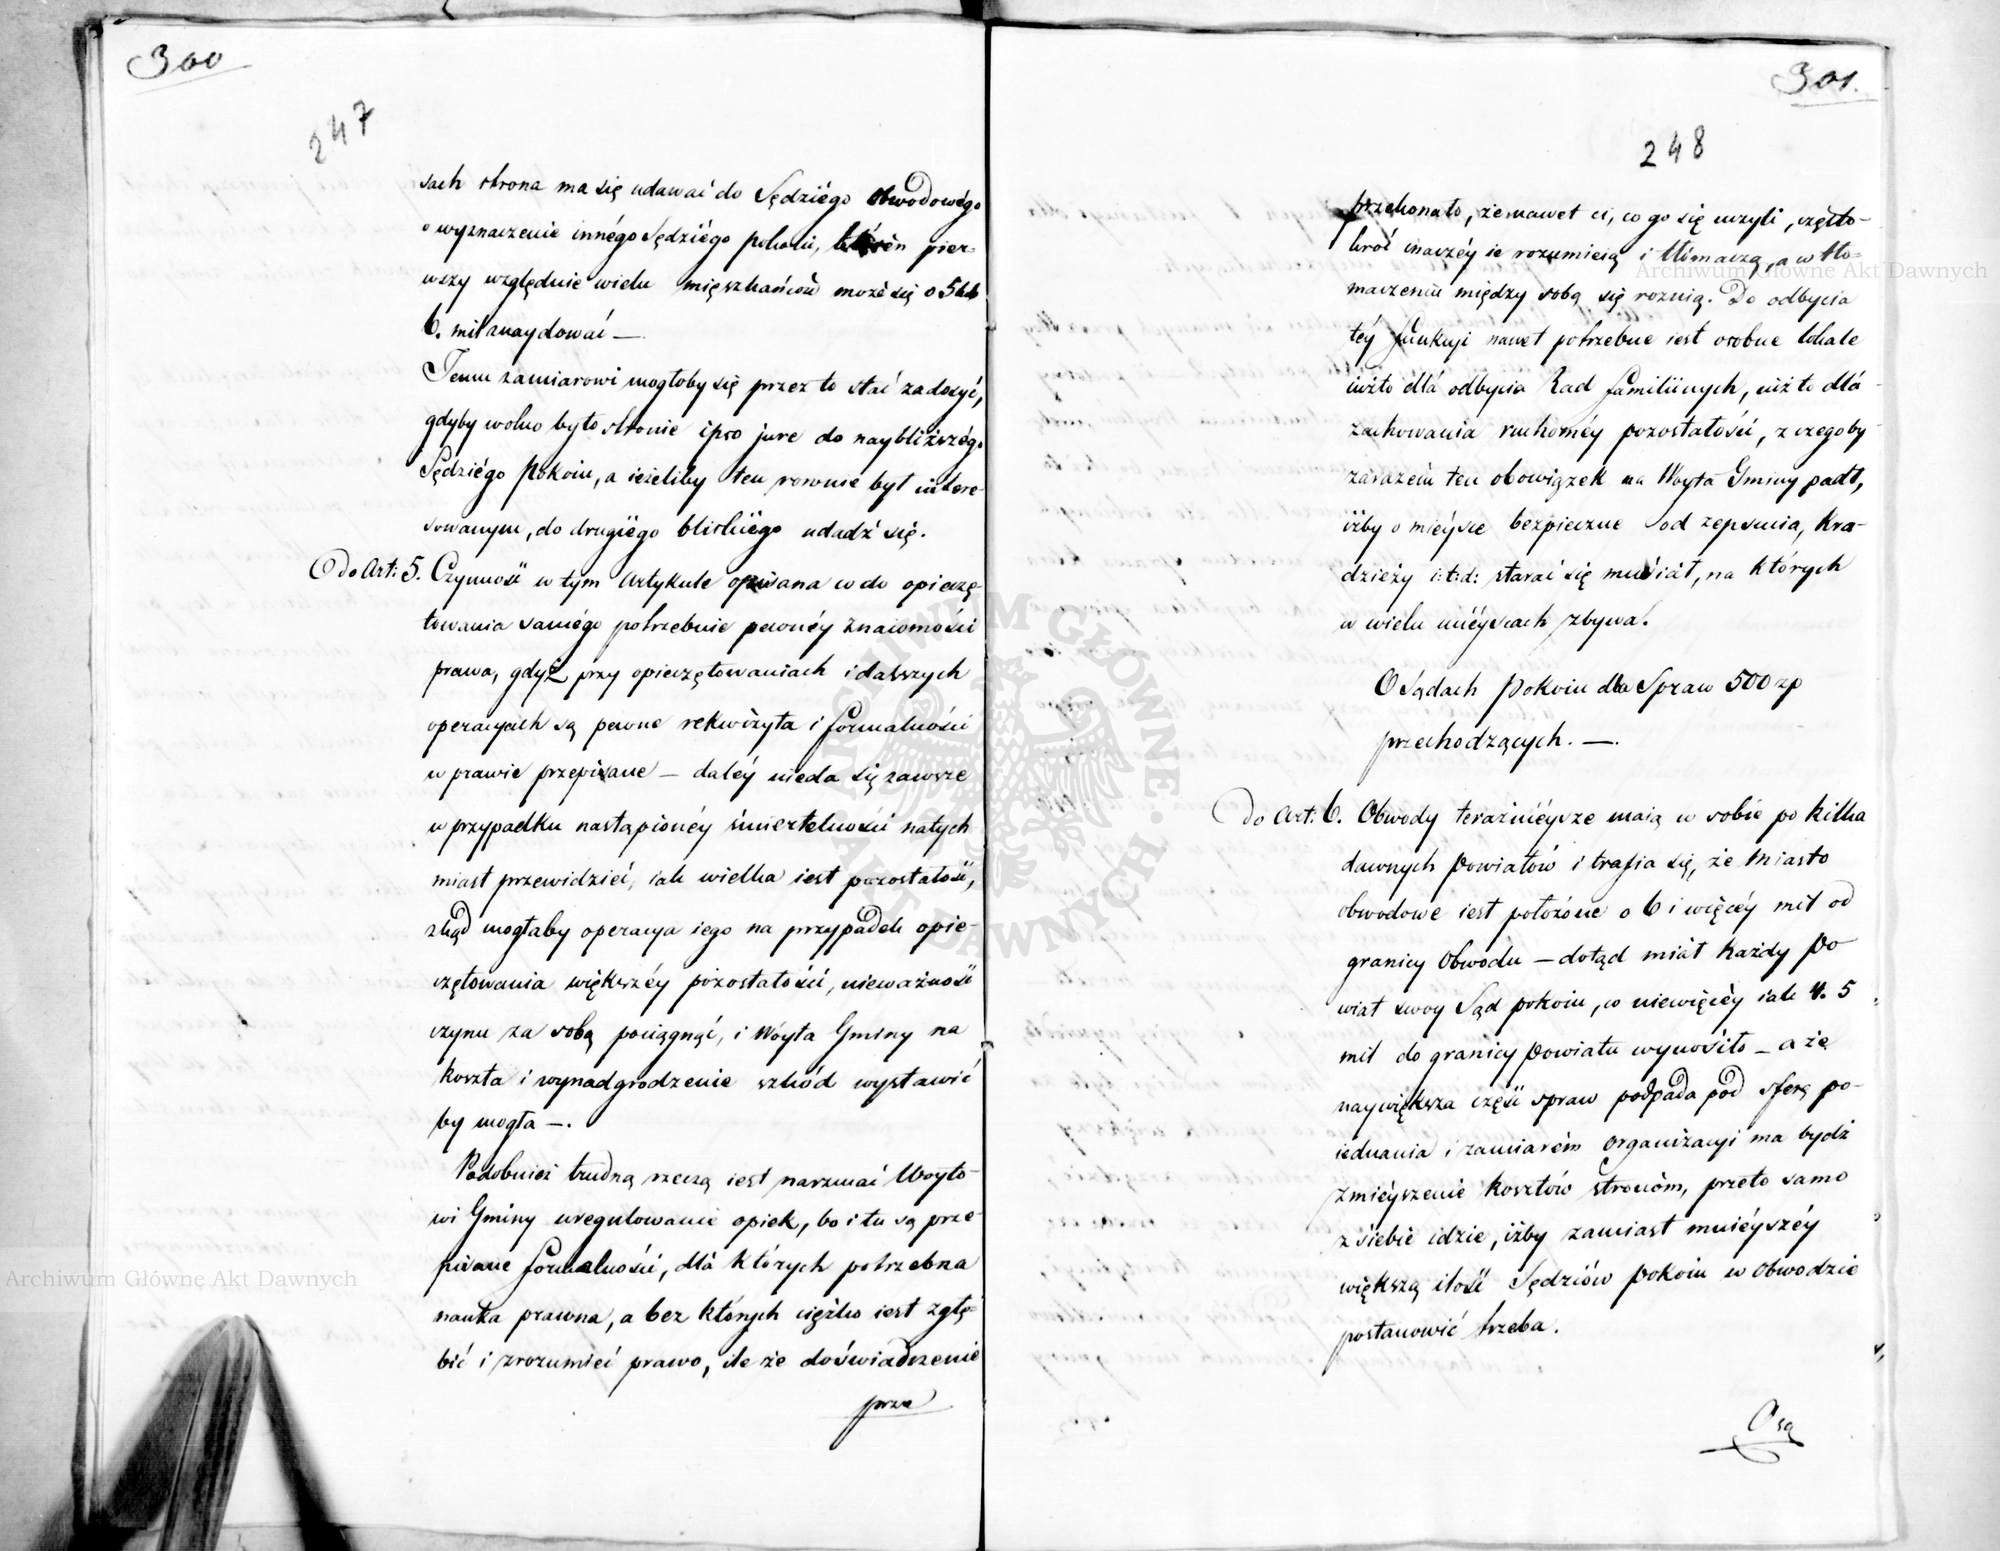 300
247
sach strona ma się udawać do Sędziégo Obwodowégo
o wyznaczenie innégo Sędziégo pokoiu, którén pier-
wszy względnie wielu mięszkańców może się o 5 lub
6. mil znaydować —
Temu zamiarowi mogłoby się przez to stać zadosyć,
gdyby wolno było stronie ipso jure do naybliższégo
Sędziégo Pokoiu, a ieżeliby ten rownie był intere-
sowanym, do drugiégo bliskiégo udadź się.
Do Art: 5. Czynność w tym Artykule opisana co do opieczę-
towania samégo potrzebuie pewnéy znaiomości
prawa, gdyż przy opieczętowaniach i dalszych
operacyach są pewne rekwizyta i formalności
w prawie przepisane — daléy nieda się zawsze
w przypadku nastąpionéy śmiertelności natych
miast przewidzieć, iak wielka iest pozostałość,
zkąd mogłaby operacya iego na przypadek opie-
czętowania większéy pozostałości, nieważność
czynu za sobą pociągnąć, i Wóyta Gminy na
koszta i wynadgrodzenie szkód wystawić
by mogła —.
Podobnież trudną rzeczą iest narzucać Woyto-
wi Gminy uregulowanie opiek, bo i tu są prze-
pisane formalności, dla których potrzebna
nauka prawna, a bez których ciężko iest zgłę-
bić i zrozumieć prawo, ile że doświadczenie
prze
301.
248
przekonało, że nawet ci, co go się uczyli, często-
kroć inaczéy ie rozumieią i tłómaczą, a w tło-
maczeniu między sobą się roznią. Do odbycia
téy funkcyi nawet potrzebne iest osobne lokale
iużto dla odbycia Rad familiinych, iuż to dla
zachowania ruchoméy pozostałości, z czegoby
zarazem ten obowiązek na Woyta Gminy padł,
iżby o mieysce bezpieczne od zepsucia, kra-
dzieży i: t: d: starać się musiał, na których
w wielu mieyscach zbywa.
O Sądach Pokoiu dla Spraw 500 zp
przechodzących. —.
Do Art: 6. Obwody teraznieysze maią w sobie po kilka
dawnych Powiatów i trafia się, że Miasto
obwodowe iest położone o 6 i więcéy mil od
granicy Obwodu — dotąd miał każdy Po
wiat swoy Sąd pokoiu, co niewięcéy iak 4. 5
mil do granicy Powiatu wynosiło — a że
naywiększa część spraw podpada pod sferę po-
iednania i zamiarem organizacyi ma bydź
zmieyszenie kosztów stronom, przeto samo
z siebie idzie, iżby zamiast mnieyszéy
większą ilość Sędziów Pokoiu w Obwodzie
postanowić trzeba.
Osą
Archiwum Główne Akt Dawnych
Archiwum Główne Akt Dawnych
ARCHIWUM GŁÓWNE AKT DAWNYCH